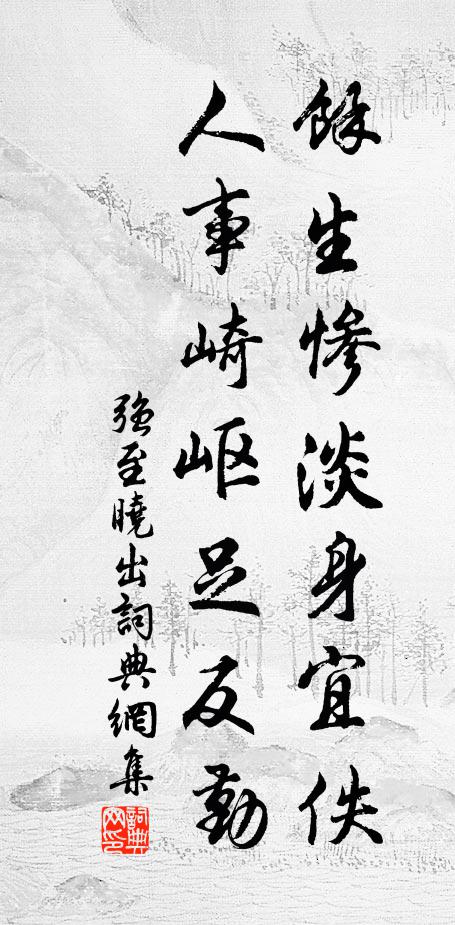 餘生慘淡身宜佚
人事崎岖足反勤
强至曉出詞典網集
詞典網印